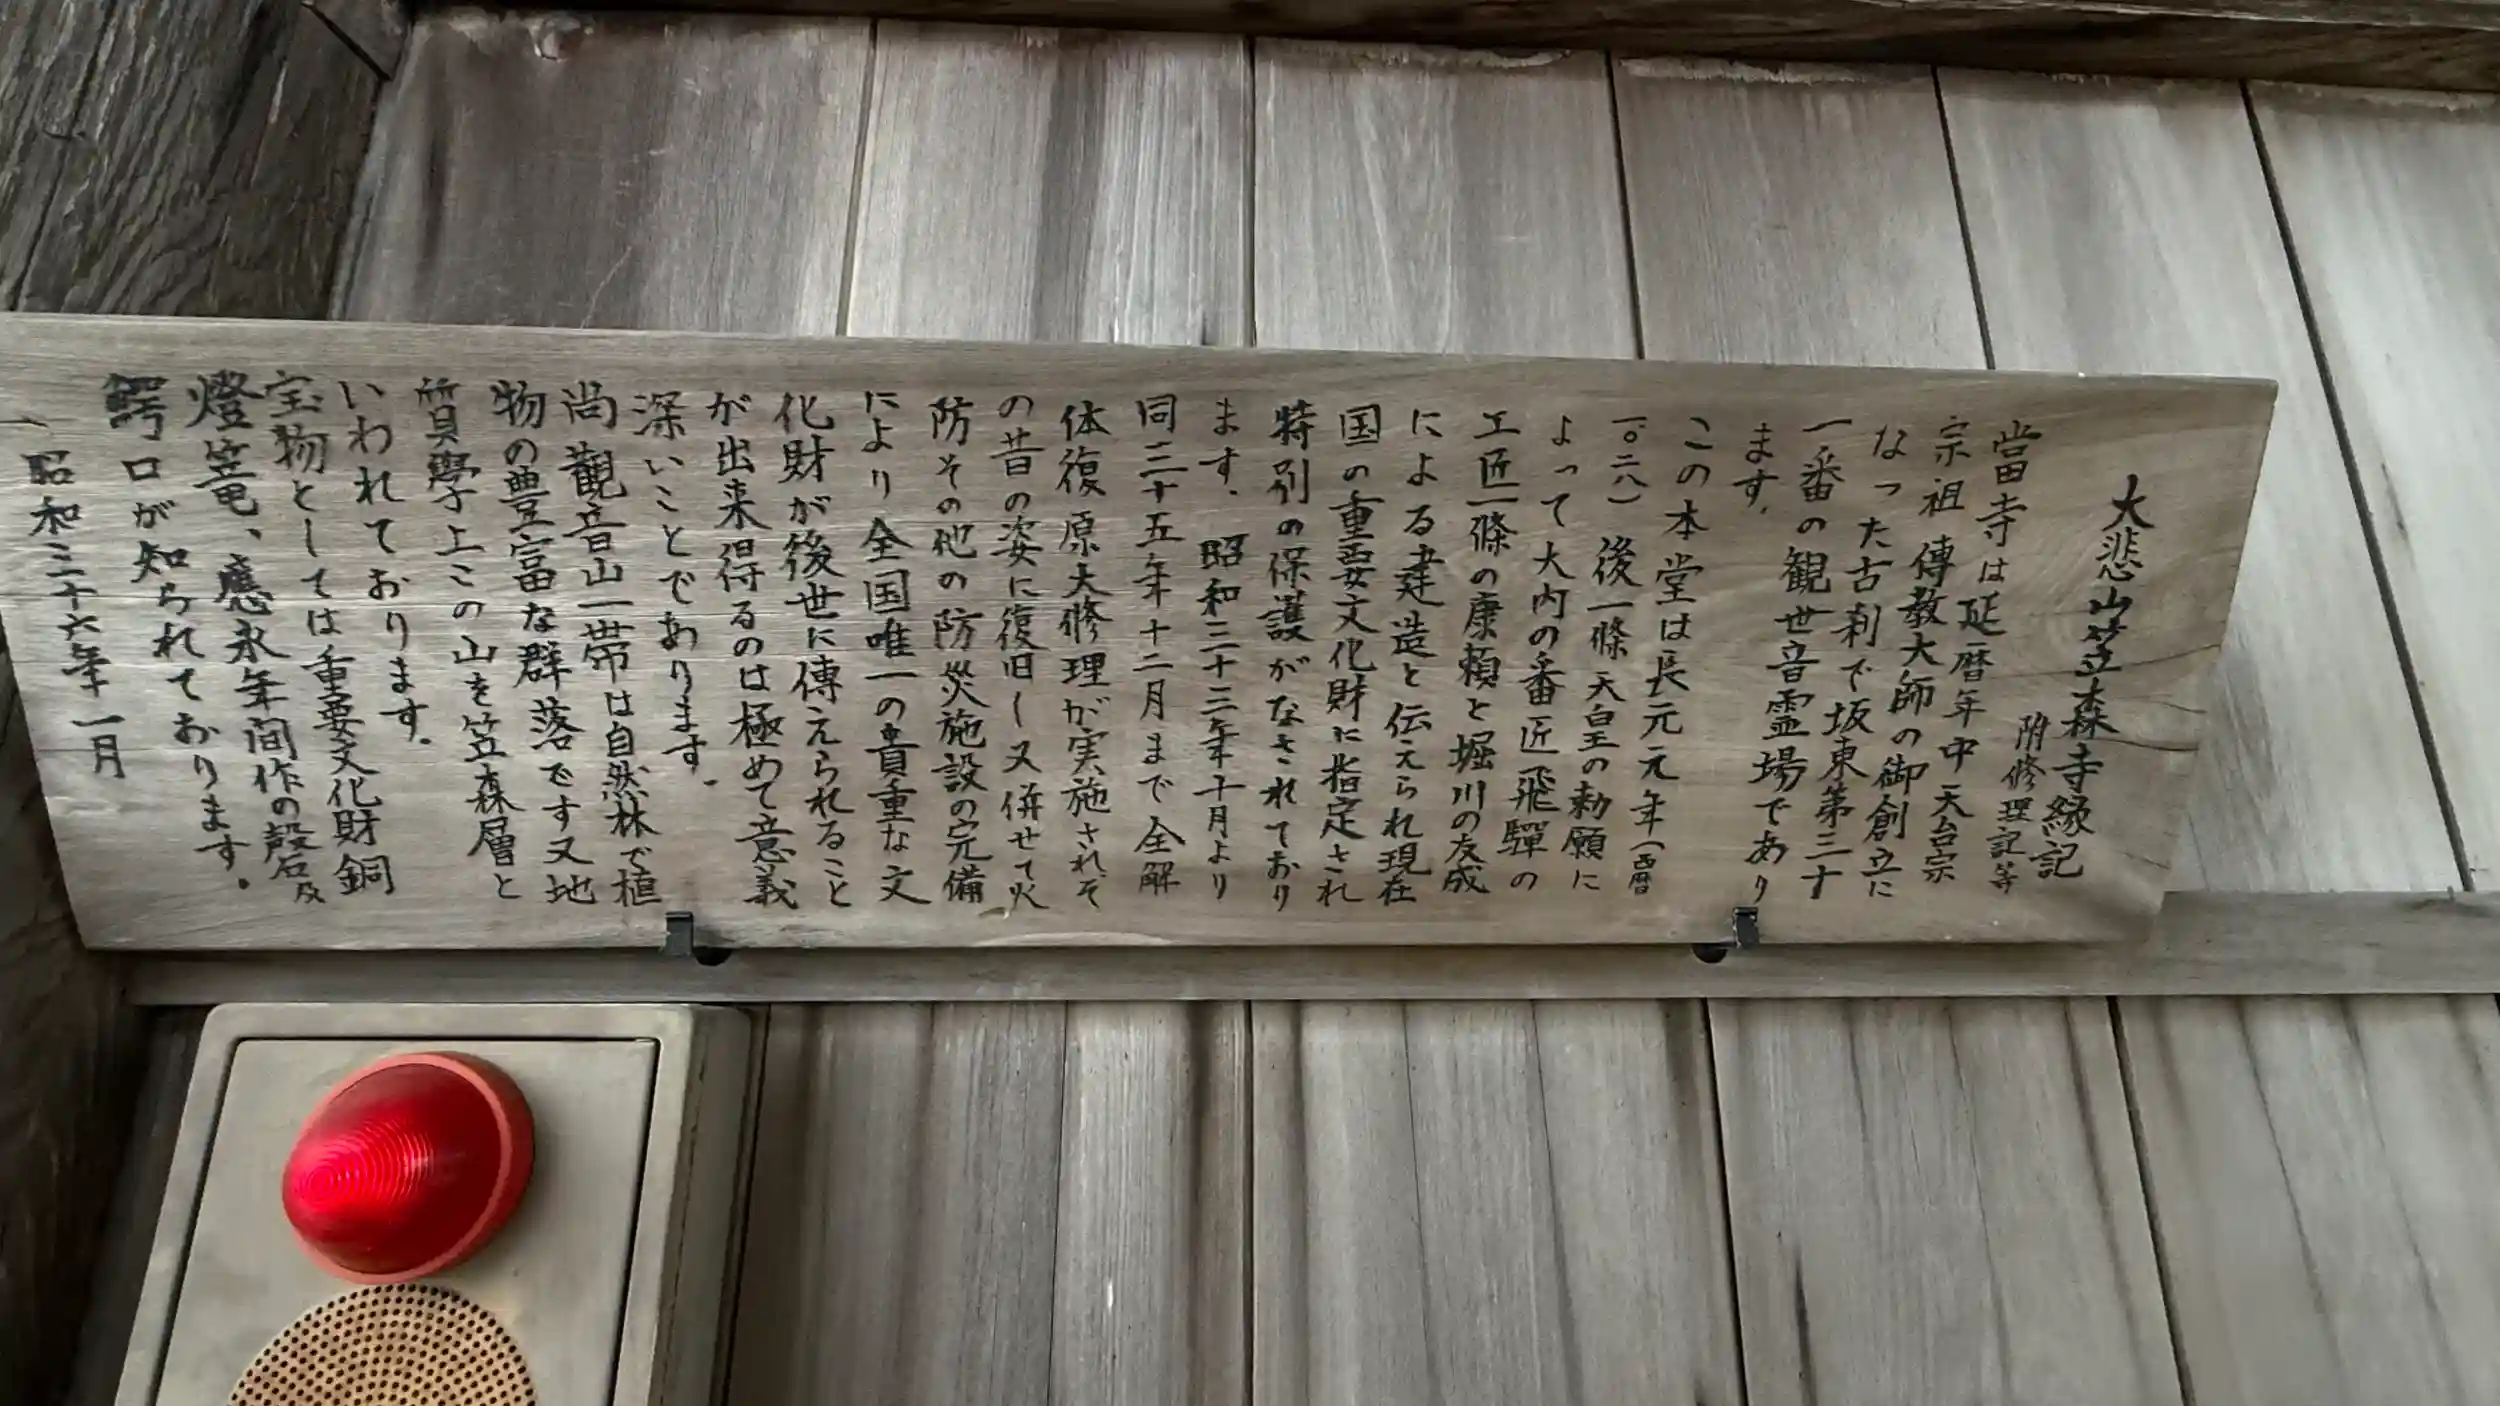 大悲山笠森寺縁記
附修理記等
當寺は延暦年中天台宗
宗祖傳教大師の御創立に
なった古刹で坂東第三十
一番の観世音霊場であり
ます。
この本堂は長元元年(西暦
一〇二八)後一條天皇の勅願に
よって大内の番匠飛驒の
工匠一條の康頼と堀川の友成
による建造と伝えられ現在
国の重要文化財に指定され
特別の保護がなされており
ます。昭和三十三年十月より
同三十五年十二月まで全解
体復原大修理が実施されそ
の昔の姿に復旧し又併せて火
防その他の防災施設の完備
により全国唯一の貴重な文
化財が後世に傳えられること
が出来得るのは極めて意義
深いことであります。
尚觀音山一帯は自然林で植
物の豊富な群落です又地
質學上この山を笠森層と
いわれております。
宝物としては重要文化財銅
燈篭、應永年間作の磬石及
鰐口が知られております。
昭和三十六年一月